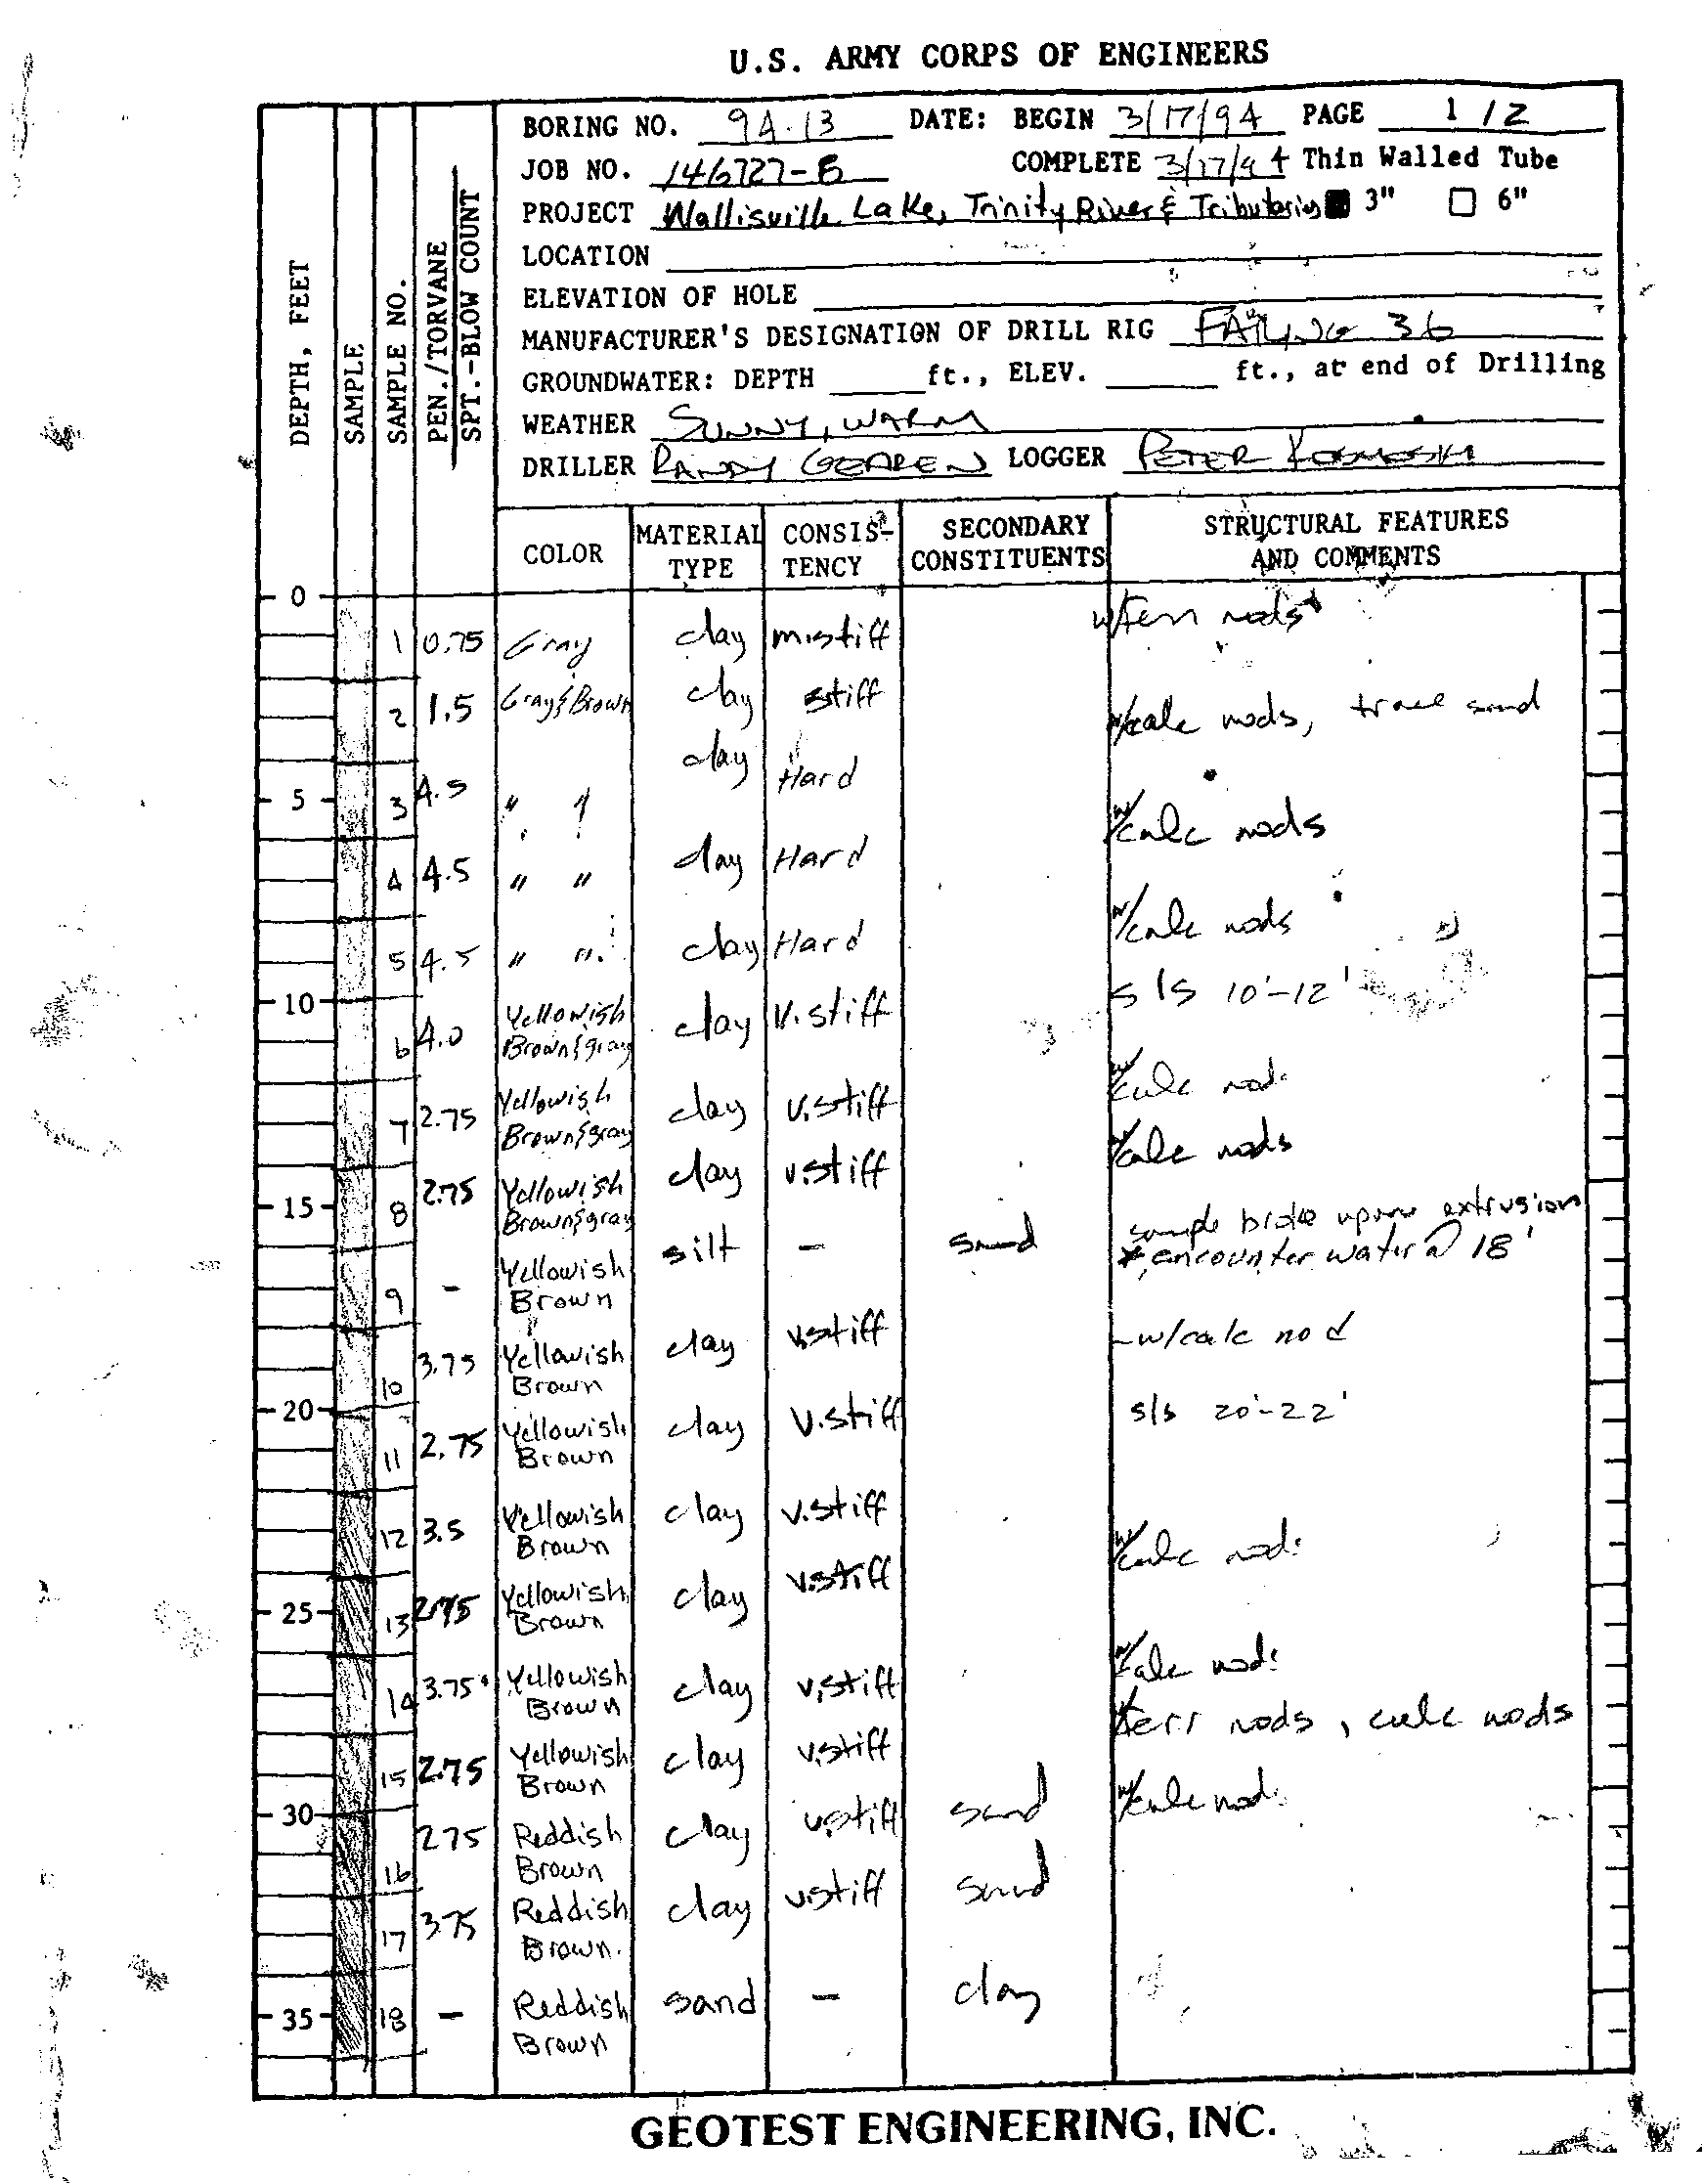 U.S. ARMY CORPS OF ENGINEERS
BORING NO. 94-13 DATE: BEGIN 3/17/94 PAGE 1 / 2
JOB NO. 146727-B COMPLETE 3/17/94 Thin Walled Tube
PROJECT Wallisville Lake, Trinity River & Tributaries 3" 6"
LOCATION
ELEVATION OF HOLE
MANUFACTURER'S DESIGNATION OF DRILL RIG FAILING 36
GROUNDWATER: DEPTH ft., ELEV. ft., at end of Drilling
WEATHER SUNNY, WARM
DRILLER RANDY GEAREN LOGGER PETER
DEPTH, FEET
SAMPLE
SAMPLE NO.
PEN./TORVANE
SPT.-BLOW COUNT
COLOR MATERIAL TYPE CONSIS-TENCY SECONDARY CONSTITUENTS STRUCTURAL FEATURES AND COMMENTS
0
1 0.75 Gray clay m.stiff w/ferr nods
2 1.5 Gray & Brown clay stiff w/calc nods, trace sand
5 3 4.5 " " clay Hard w/calc nods
4 4.5 " " clay Hard
5 4.5 " " clay Hard w/calc nods
10 6 4.0 Yellowish Brown & gray clay V.stiff s/s 10'-12'
7 2.75 Yellowish Brown & gray clay v.stiff w/calc nods
15 8 2.75 Yellowish Brown & gray clay v.stiff w/calc nods
9 - Yellowish Brown silt - sand sample broke upon extrusion
* encounter water @ 18'
10 3.75 Yellowish Brown clay v.stiff -w/calc nod
20 11 2.75 Yellowish Brown clay V.stiff s/s 20'-22'
12 3.5 Yellowish Brown clay v.stiff w/calc nods
25 13 2.75 Yellowish Brown clay v.stiff
14 3.75 Yellowish Brown clay v.stiff w/calc nods
15 2.75 Yellowish Brown clay v.stiff w/ferr nods, calc nods
30 16 2.75 Reddish Brown clay v.stiff sand w/calc nods
17 3.75 Reddish Brown. clay v.stiff sand
35 18 - Reddish Brown sand - clay
GEOTEST ENGINEERING, INC.